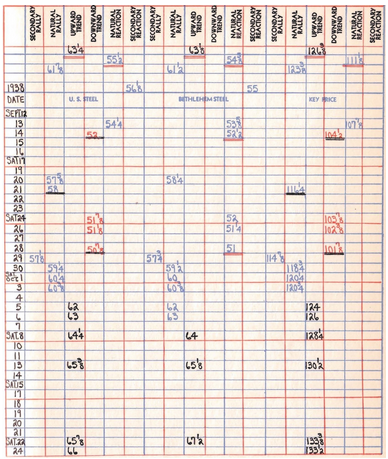 SECONDARY RALLY NATURAL RALLY UPWARD TREND DOWNWARD TREND NATURAL REACTION SECONDARY REACTION SECONDARY RALLY NATURAL RALLY UPWARD TREND DOWNWARD TREND NATURAL REACTION SECONDARY REACTION SECONDARY RALLY NATURAL RALLY UPWARD TREND DOWNWARD TREND NATURAL REACTION SECONDARY REACTION
63¼ 63⅛
55½
61½
56⅞ 55
1938
DATE U. S. STEEL BETHLEHEM STEEL KEY PRICE
SEPT.12
13 54¼ 53⅝ 107⅞
14 52 52½ 104½
15
16
SAT.17
19
20 57⅝ 58¼
21 58 116¼
22
23
SAT.24 51⅞ 52 103⅞
26 51⅛ 51¼ 102⅜
27
28 50⅞ 51 101⅞
29 57⅛ 57¾ 114⅞
30 59¼ 59½ 118¾
SAT. OCT.1 60¼ 60 120¼
3 60⅜ 60⅜ 120¾
4
5 62 62 124
6 63 63 126
7
SAT.8 64¼ 64 128¼
10
11
13 65⅜ 65⅛ 130½
14
SAT.15
17
18
19
20
21
SAT.22 65⅞ 67½ 133⅜
24 66 133½